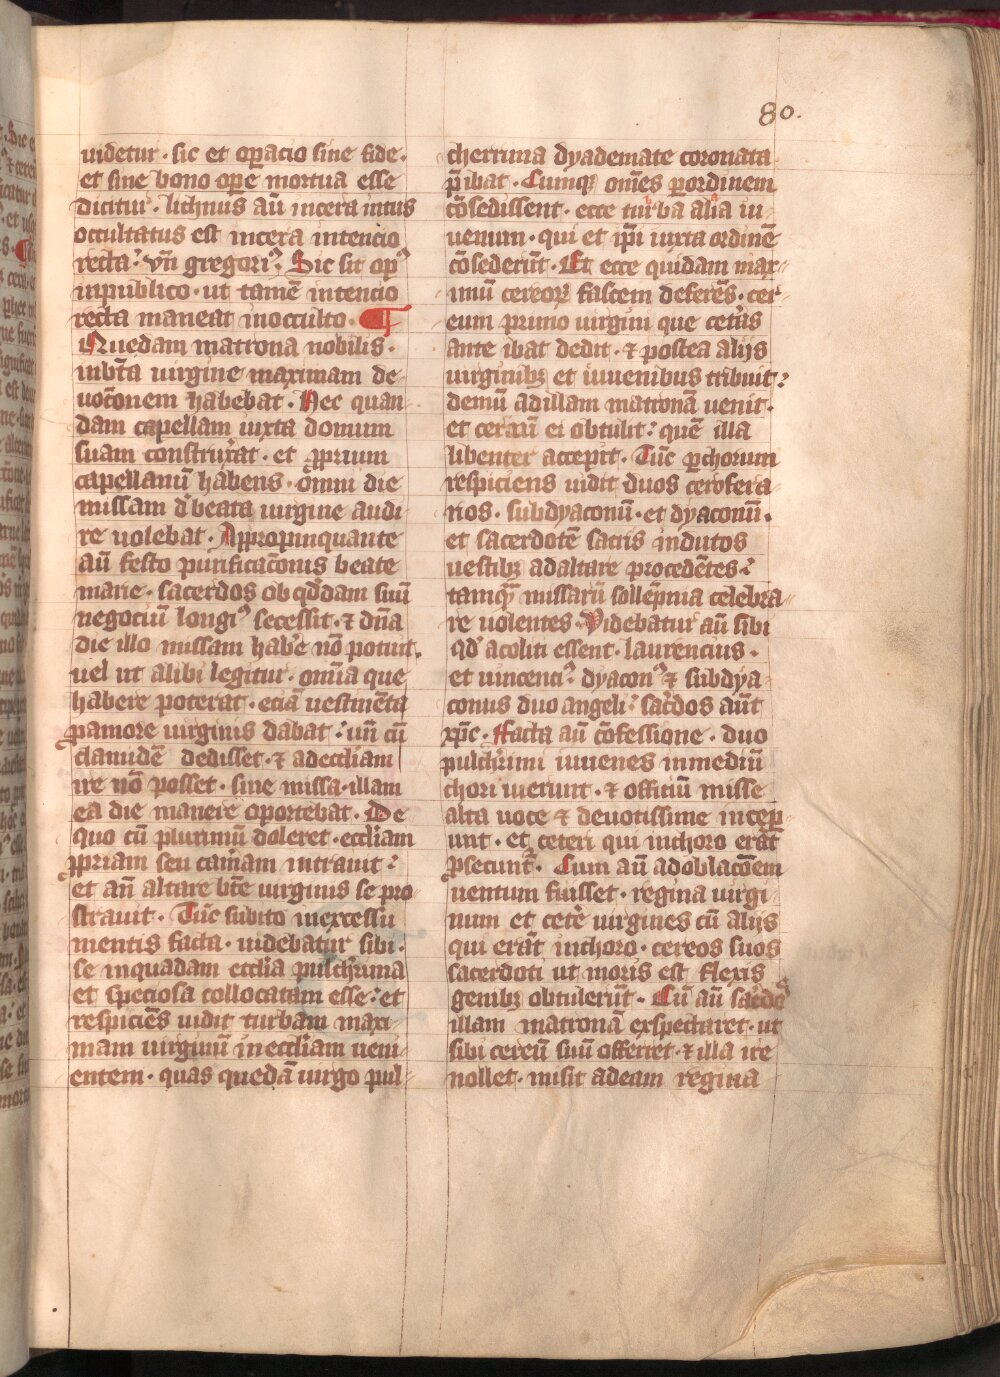 80.
uidetur · sic et op̄acio sine fide ·
et sine bono ope mortua esse
dicitur · lichnus aū incera intus
occultatus est incera intencio
recta : vn̄ gregori⁹ : Sic sit op⁹
inpublico · ut tamē intencio
recta maneat inocculto · ¶
Quedam matrona nobilis ·
inb̄ta uirgine maximam de
uoc̄onem habebat · Hec quan
dam capellam iuxta domum
suam construx̓at · et ꝓprium
capellanū habens · omni die
missam d̓ beata uirgine audi
re uolebat · Appropinquante
aū festo purificac̄onis beate
marie · sacerdos ob qd̓dam suū
negociū longi⁹ secessit · ⁊ dn̄a
die illo missam hab̓e nō potuit ·
uel ut alibi legitur · om̄ia que
habere poterat · eciā uestimēta
ꝓamore uirginis dabat : un̄ cū
clamidē dedisset · ⁊ adecclīam
ire nō posset · sine missa · illam
ea die manere oportebat · De
quo cū plurimū doleret · eccl̄iam
ꝓpriam seu cam̓am intrauit :
et an̄ altare bt̄e uirginis se pro
strauit · Tūc subito inexcessu
mentis facta · uidebatur sibi ·
se inquadam eccl̄ia pulch̓rima
et speciosa collocatam esse : et
respiciēs uidit turbam maxi
mam uirginū ineccl̄iam ueni
entem · quas quedā uirgo pul
cherrima dyademate coronata
p̄ibat · Cumqꝫ om̄es ꝑordinem
cōsedissent · ecce turba alia iu
uenum · qui et ip̄i iuxta ordinē
cōsederūt · Et ecce quidam max
imū cereoꝝ fascem deferēs · cer
eum primo uirgini que cet̓as
ante ibat dedit · ⁊ postea alijs
uirginibꝫ et iuuenibus tribuit :
demū adillam matronā uenit ·
et cereū ei obtulit : quē illa
libenter accepit · Tūc ꝑchorum
respiciens uidit duos cerofera
rios · subdyaconū · et dyaconū ·
et sacerdotē sacris indutos
uestibꝫ adaltare procedētes :
tamqᷓ missarū sollēpnia celebra
re uolentes · Videbatur aū sibi
qd̓ acoliti essent · laurencius ·
et uincenci⁹ : dyacon⁹ ⁊ subdya
conus duo angeli : sac̓dos aūt
xp̄c · Facta aū cōfessione · duo
pulch̓rimi iuuenes inmediū
chori uierunt · ⁊ officiū misse
alta uoce ⁊ deuotissime incep̄
unt · et ceteri qui inchoro erāt
ꝓsecunt᷑ · Cum aū adoblac̄oem
uentum fuisset · regina uirgi
num et cet̓e uirgines cū alijs
qui erāt inchoro · cereos suos
sacerdoti ut moris est flexis
genibꝫ obtulerūt · Cū aū sac̓dos
illam matronā exspectaret · ut
sibi cereū suū offerret · ⁊ illa ire
nollet · misit adeam regina